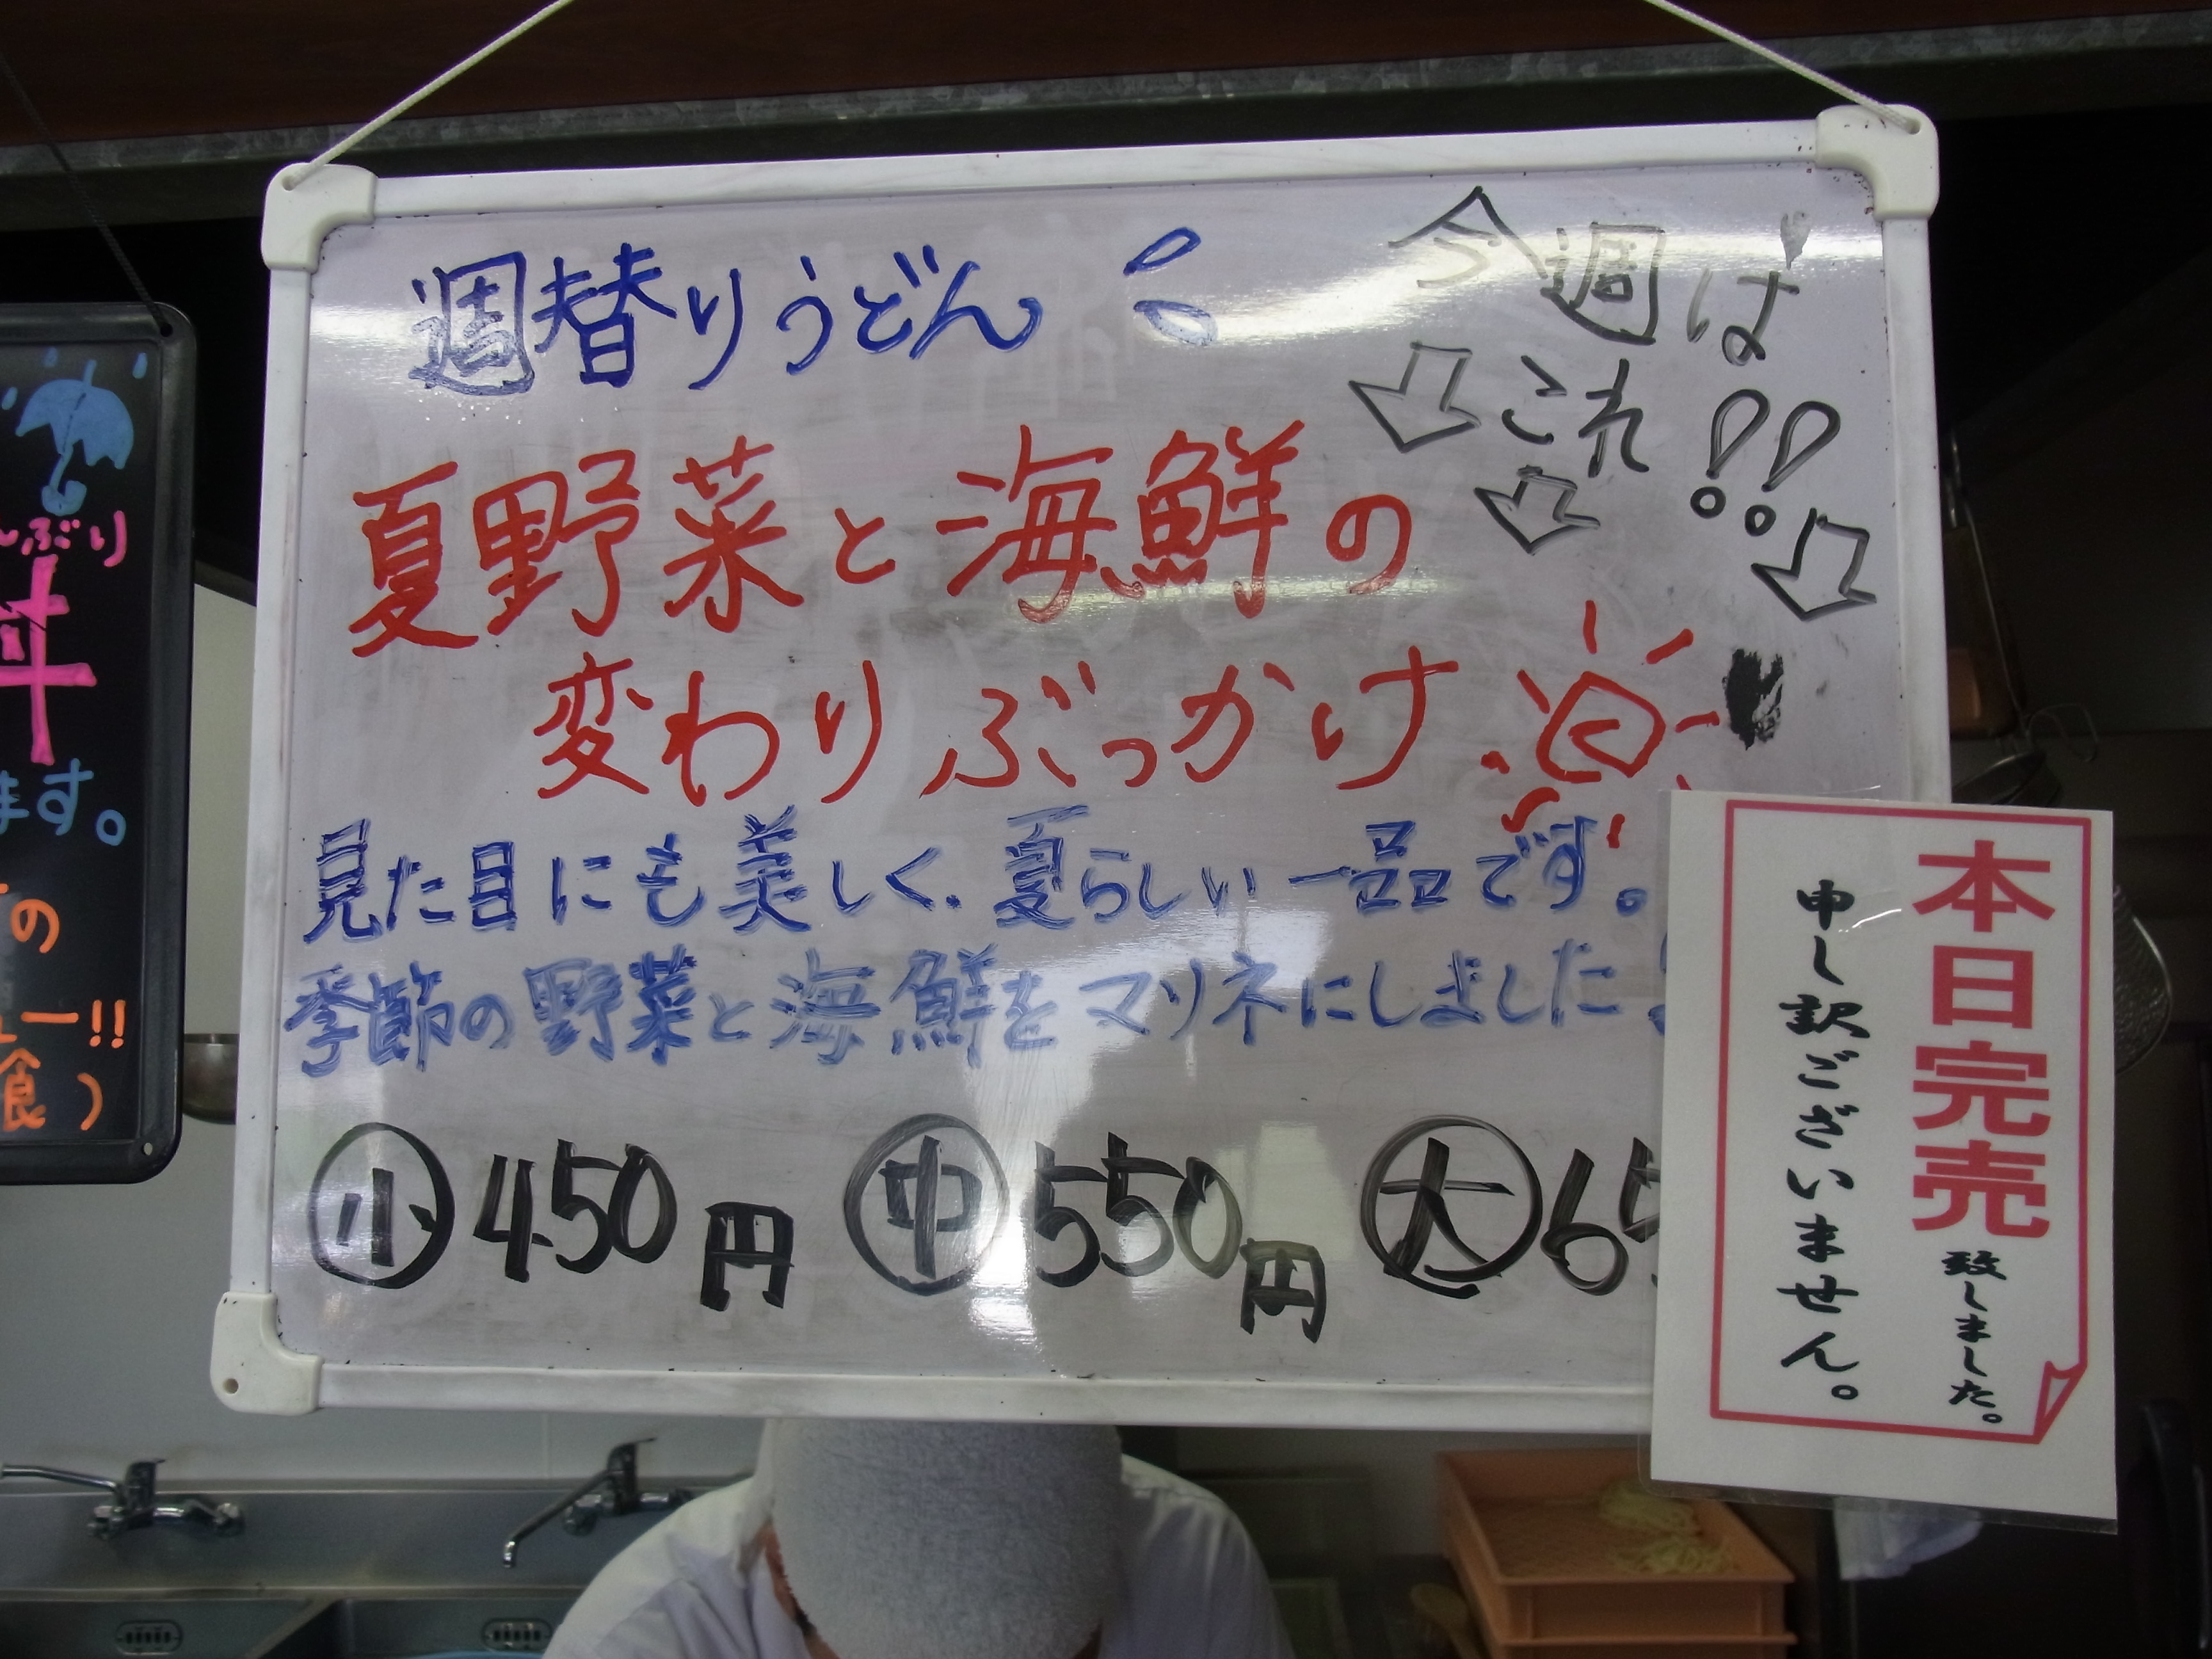 週替りうどん
今週は
これ!!
夏野菜と海鮮の
変わりぶっかけ
見た目にも美しく、夏らしい一品です。
季節の野菜と海鮮をマリネにしました
小 450円 中 550円 大 65
本日完売致しました。
申し訳ございません。
ぶり
丼
ます。
の
ュー!!
食)